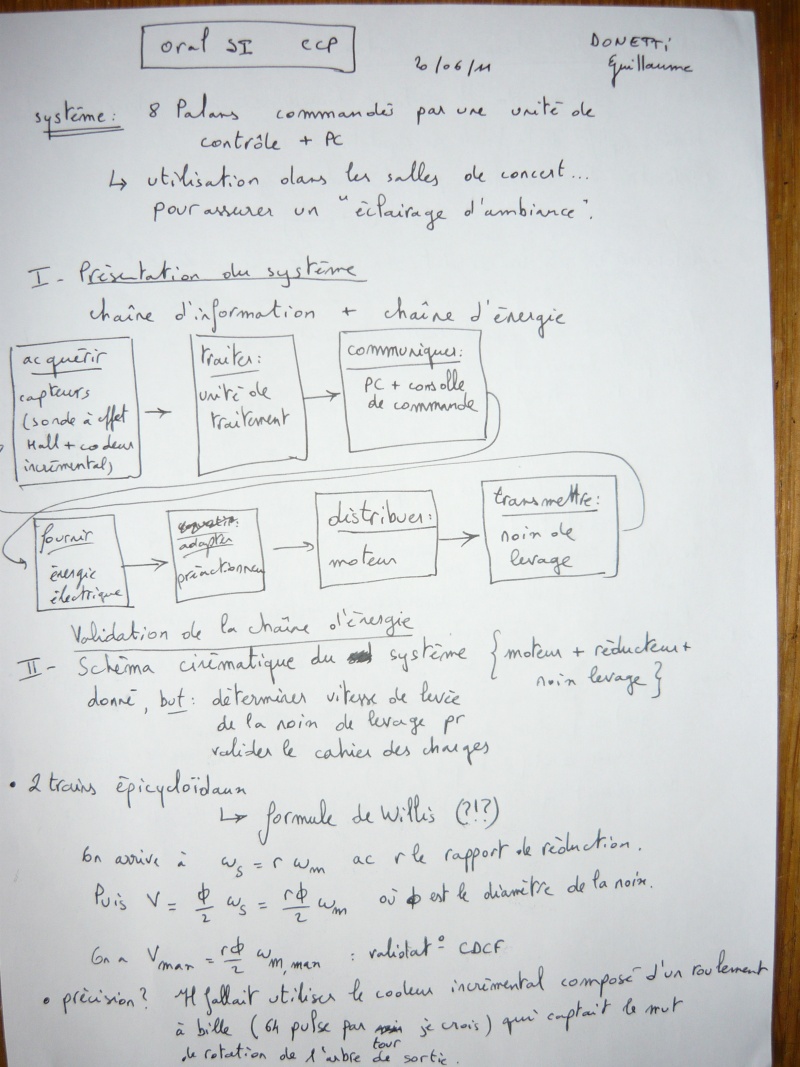 oral SI CCP
20/06/11
DONETTI
Guillaume
système: 8 Palans commandés par une unité de
contrôle + PC
↳ utilisation dans les salles de concert...
pour assurer un "éclairage d'ambiance".
I - Présentation du système
chaîne d'information + chaîne d'énergie
acquérir
capteurs
(sonde à effet
Hall + codeur
incrémental)
traiter:
unité de
traitement
communiquer:
PC + consolle
de commande
fournir
énergie
électrique
adapter
préactionneur
distribuer:
moteur
transmettre:
noix de
levage
Validation de la chaîne d'énergie
II - Schéma cinématique du système {moteur + réducteur +
noix levage}
donné, but: déterminer vitesse de levée
de la noix de levage pr
valider le cahier des charges
• 2 trains épicycloïdaux
↳ formule de Willis (?!?)
On arrive à ωs = r ωm ac r le rapport de réduction.
Puis V = ϕ/2 ωs = rϕ/2 ωm où ϕ est le diamètre de la noix.
On a Vmax = rϕ/2 ωm,max : validat° CDCF
• précision? Il fallait utiliser le codeur incrémental composé d'un roulement
à bille (64 pulse par tour je crois) qui captait le mvt
de rotation de l'arbre de sortie.